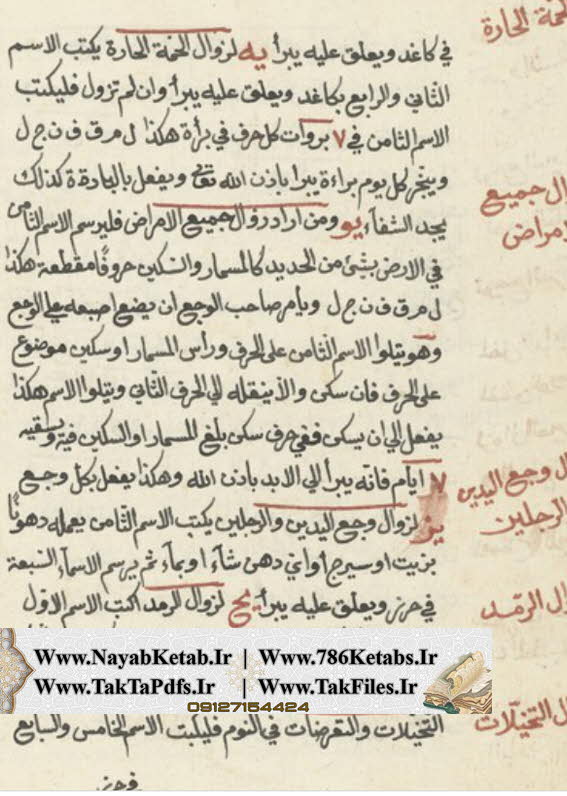 في كاغد ويعلق عليه يبرأ يه لزوال الحمة الحارة يكتب الاسم
الحمة الحارة
الثاني والرابع بكاغد ويعلق عليه يبرأ وان لم تزول فليكتب
الاسم الثامن في ٧ بروات كل حرف في برأة هكذا ل م ق ف ن ج ل
ويبخر كل يوم براءة يبرا باذن الله تعالى ويفعل كذلك
ال جميع
الامراض
يجد الشفاء يو ومن اراد زوال جميع الامراض فليرسم الاسم الثامن
في الارض بشئ من الحديد كالمسمار والسكين حروفا مقطعة هكذا
ل م ق ف ن ج ل ويأمر صاحب الوجع ان يضع اصبعه على الوجع
وهو يتلوا الاسم الثامن على الحرف ورأس المسمار او سكين موضوع
على الحرف فان سكن والا ينقله الي الحرف الثاني ويتلوا الاسم هكذا
يفعل الي ان يسكن ففي حرف سكن بلغ المسمار او السكين فيه ويسقيه
٧ ايام فانه يبرأ الي الابد باذن الله وهكذا يفعل بكل وجع
ال وجع اليدين
والرجلين
يز لزوال وجع اليدين والرجلين يكتب الاسم الثامن يعمله دهونا
بزيت او سيرج أو اني دهن شاء او بماء ثم يرسم الاسماء السبعة
في حرز ويعلق عليه يبرأ يح لزوال الرمد اكتب الاسم الاول
ال الرمد
Www.NayabKetab.Ir | Www.786Ketabs.Ir
Www.TakTaPdfs.Ir | Www.TakFiles.Ir
09127154424
ال التخيلات
التخيلات والتعرضات في النوم فليكتب الاسم الخامس والسابع
في حرز